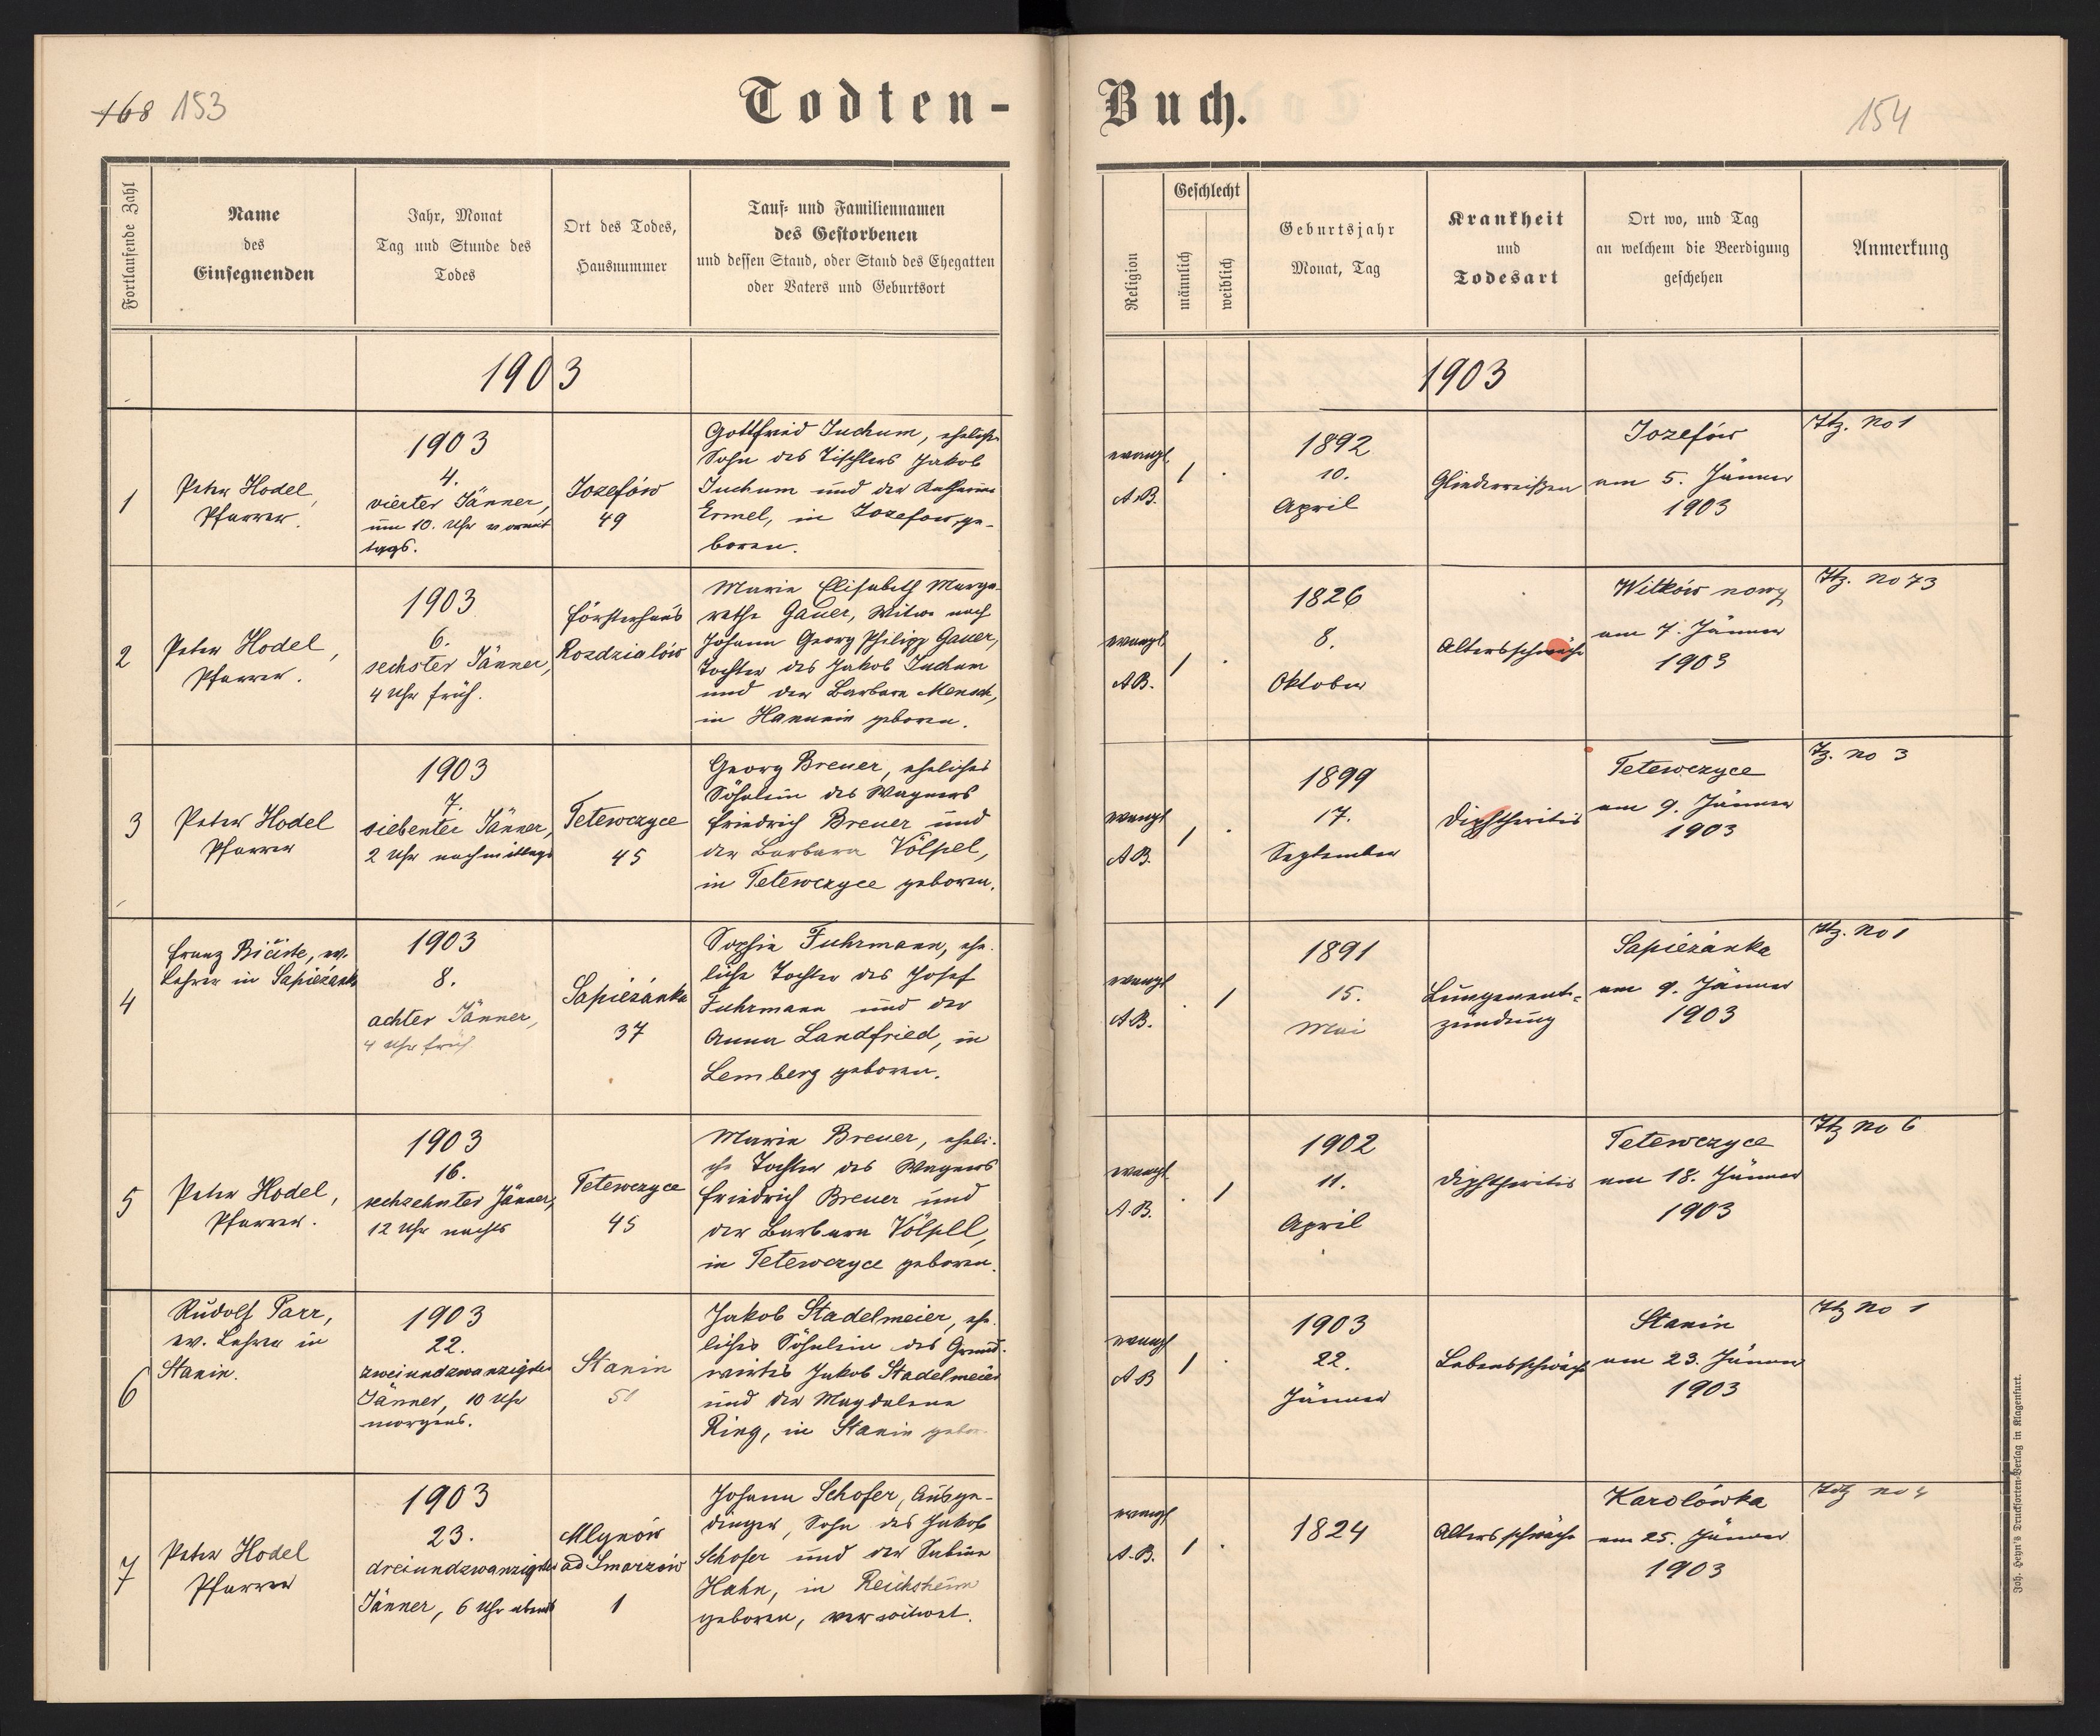 168 153
Todten-
Fortlaufende Zahl
Name
des
Einsegnenden
Jahr, Monat
Tag und Stunde des
Todes
Ort des Todes,
Hausnummer
Tauf- und Familiennamen
des Gestorbenen
und dessen Stand, oder Stand des Ehegatten
oder Vaters und Geburtsort
1903
1
Peter Hodel,
Pfarrer.
1903
4.
vierter Jänner,
um 10. Uhr vormit
tags.
Jozefów
49
Gottfried Juchum, ehelich.
Sohn des Tischlers Jakob
Juchum und der Katharina
Ermel, in Jozefow ge-
boren.
2
Peter Hodel,
Pfarrer.
1903
6.
sechster Jänner,
4 Uhr früh.
Försterhaus
Rozdzialów
Marie Elisabeth Marga-
rethe Gauer, Witwe nach
Johann Georg Philipp Gauer,
Tochter des Jakob Juchum
und der Barbara Mensch,
in Hanunin geboren.
3
Peter Hodel
Pfarrer
1903
7.
siebenter Jänner,
2 Uhr nachmittags
Tetewczyce
45
Georg Breuer, eheliches
Söhnlein des Wagners
Friedrich Breuer und
der Barbara Völpel,
in Tetewczyce geboren.
4
Franz Bićiste, ev.
Lehrer in Sapieżanka
1903
8.
achter Jänner,
4 Uhr früh
Sapieżanka
37
Sophie Fuhrmann, ehe-
liche Tochter des Josef
Fuhrmann und der
Anna Landfried, in
Lemberg geboren.
5
Peter Hodel,
Pfarrer.
1903
16.
sechzehnter Jänner,
12 Uhr nachts
Tetewczyce
45
Marie Breuer, eheli-
che Tochter des Wagners
Friedrich Breuer und
der Barbara Völpell,
in Tetewczyce geboren.
6
Rudolf Parr,
ev. Lehrer in
Stanin.
1903
22.
zweiundzwanzigster
Jänner, 10 Uhr
morgens.
Stanin
51
Jakob Stadelmeier, ehe-
liches Söhnlein des Grund-
wirtes Jakob Stadelmeier
und der Magdalena
Ring, in Stanin gebor.
7
Peter Hodel
Pfarrer
1903
23.
dreiundzwanzigster
Jänner, 6 Uhr abends
Mlynów
ad Smarzów
1
Johann Schofer, Ausge-
dinger, Sohn des Jakob
Schofer und der Sabina
Hahn, in Reichsheim
geboren, verwitwet.
Buch.
154
Religion
Geschlecht
männlich
weiblich
Geburtsjahr
Monat, Tag
Krankheit
und
Todesart
Ort wo, und Tag
an welchem die Beerdigung
geschehen
Anmerkung
1903
evangl.
A.B.
1 .
1892
10.
April
Gliederreißen
Jozefów
am 5. Jänner
1903
Htz. No 1
evangl.
AB.
1 .
1826
8.
Oktober
Altersschwäche
Witków nowy
am 7. Jänner
1903
Htz. No 73
evangl
AB.
1 .
1899
17.
September
Diphtheritis
Tetewczyce
am 9. Jänner
1903
Tz. no 3
evangl
AB.
. 1
1891
15.
Mai
Lungenent-
zündung
Sapieżánka
am 9. Jänner
1903
Htz. No 1
evangl.
A.B.
. 1
1902
11.
April
Diphtheritis
Tetewczyce
am 18. Jänner
1903
Htz No 6
evangl
AB
1 .
1903
22.
Jänner
Lebensschwäche
Stanin
am 23. Jänner
1903
Htz No 1
evangl
A.B.
1 .
1824
Altersschwäche
Karolówka
am 25. Jänner
1903
Htz No 4
Joh. Heyn's Drucksorten-Verlag in Klagenfurt.